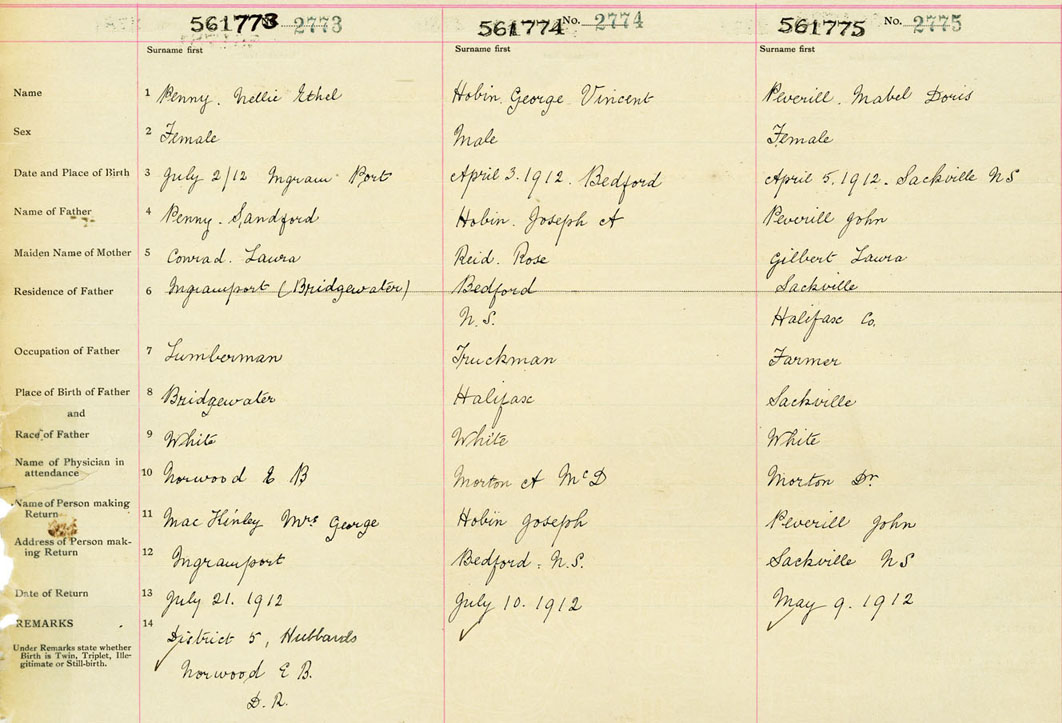 561773 2773 561774 No. 2774 561775 No. 2775
Surname first Surname first Surname first
Name 1 Penny. Nellie Ethel Hobin George Vincent Peverill. Mabel Doris
Sex 2 Female Male Female
Date and Place of Birth 3 July 2/12 Ingram Port April 3. 1912. Bedford April 5. 1912. Sackville NS
Name of Father 4 Penny. Sandford Hobin. Joseph A Peverill John
Maiden Name of Mother 5 Conrad. Laura Reid. Rose Gilbert Laura
Residence of Father 6 Ingramport (Bridgewater) Bedford Sackville
N.S. Halifax Co.
Occupation of Father 7 Lumberman Truckman Farmer
Place of Birth of Father 8 Bridgewater Halifax Sackville
and
Race of Father 9 White White White
Name of Physician in
attendance 10 Norwood E B Morton A McD Morton Dr
Name of Person making
Return 11 MacKinley Mrs George Hobin Joseph Peverill John
Address of Person mak-
ing Return 12 Ingramport Bedford. N.S. Sackville NS
Date of Return 13 July 21. 1912 July 10. 1912 May 9. 1912
REMARKS 14
District 5, Hubbards
Under Remarks state whether
Birth is Twin, Triplet, Ille-
gitimate or Still-birth.
Norwood E B.
D.R.